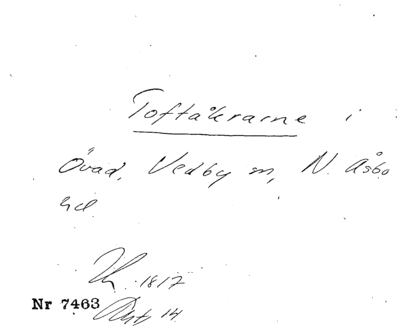 Toftåkrarne i
Övad, Vedby sn, N. Åsbo
hd.
1817
Nr 7463
14